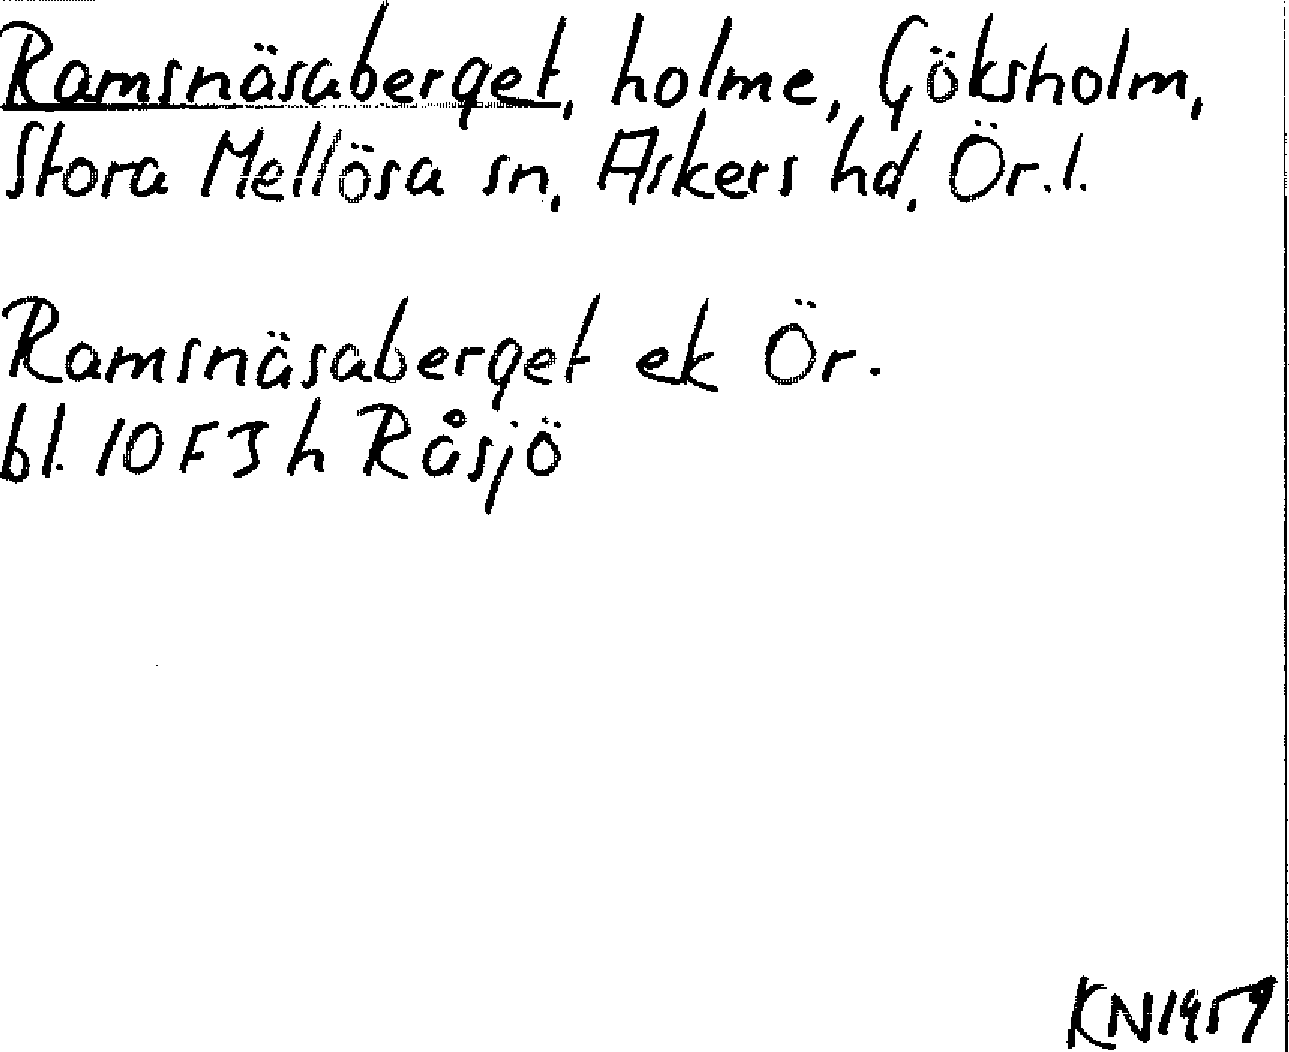 Ramsnäsaberget, holme, Göksholm,
Stora Mellösa sn, Askers hd, Ör.l.
Ramsnäsaberget ek Ör.
bl. 10 F 3 h Råsjö
KN1959